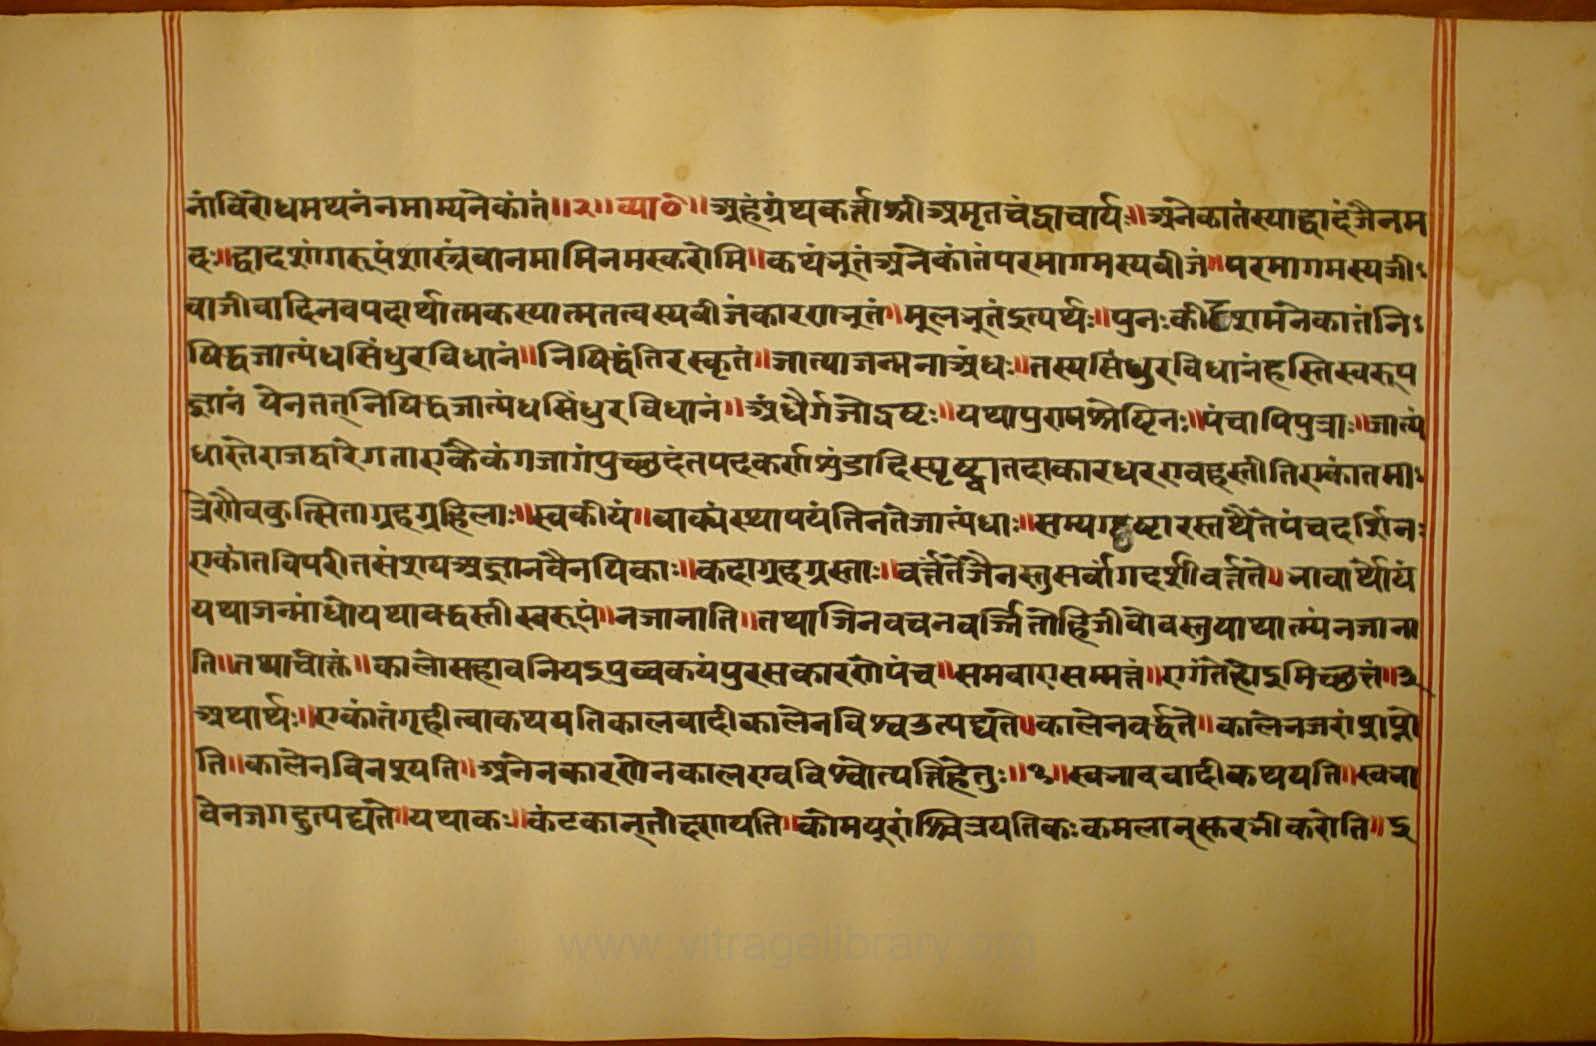 नांविरोधमथनंनमाम्यनेकांतं॥२॥व्या०॥अहंग्रंथकर्त्ताश्रीअमृतचंद्राचार्यः॥अनेकांतंस्याद्वादंजैनम
द्वादशांगरूपंशास्त्रंवानमामिनमस्करोमि॥कथंभूतंअनेकांतंपरमागमस्यबीजं॥परमागमस्यजी
वाजीवादिनवपदार्थात्मकस्यात्मतत्वस्यवीजंकारणभूतं॥मूलभूतंइत्यर्थः॥पुनःकीदृशमनेकांतंनि
षिद्धजात्यंधसिंधुरविधानं॥निषिद्धंतिरस्कृतं॥जात्याजन्मनाअंधः॥तस्यसिंधुरविधानंहस्तिस्वरूप
ज्ञानं येनतत्निषिद्धजात्यंधसिंधुरविधानं॥अंधैर्गजोदृष्टः॥यथापुरामश्रेष्टिनः॥पंचापिपुत्राः॥जात्यं
धास्तेराजद्वारेगताएकैकंगजांगंपुच्छदंतपदकर्णशुंडादिस्पृष्ट्वातदाकारधरएवहस्तीतिएकांतमा
त्रेणैवकुत्सिताग्रहग्रहिलाः॥स्वकीयं॥वाक्यंस्थापयंतिनतेजात्यंधाः॥सम्यग्दृष्टारस्तथैतेपंचदर्शिनः
एकांतविपरीतसंशयअज्ञानवैनयिकाः॥कदाग्रहग्रस्ताः॥वर्त्ततेजैनस्तुसर्वांगदर्शीवर्त्तते॥भावार्थोयं
यथाजन्मांधोयथावद्धस्तीस्वरूपं॥नजानाति॥तथाजिनवचनवर्ज्जितोहिजीवोवस्तुयाथात्म्यंनजाना
ति॥तथाचोक्तं॥कालोसहावनियइपुव्वकयंपुरसकारणेपंच॥समवाएसम्मत्तं॥एगंतेहोइमिच्छत्तं॥१
अथार्थः॥एकांतंगृहीत्वाकथयतिकालवादीकालेनविश्वउत्पद्यंते॥कालेनवर्द्धते॥कालेनजरांप्राप्नो
ति॥कालेनविनश्यति॥अनेनकारणेनकालएवविश्वोत्पत्तिहेतुः॥१॥स्वभाववादीकथयति॥स्वभा
वेनजगदुत्पद्यंते॥यथाकः॥कंटकान्तीक्ष्णयति॥कोमयूरांश्चित्रयतिकःकमलान्स्करभीकरोति॥इ
www.vitragelibrary.org